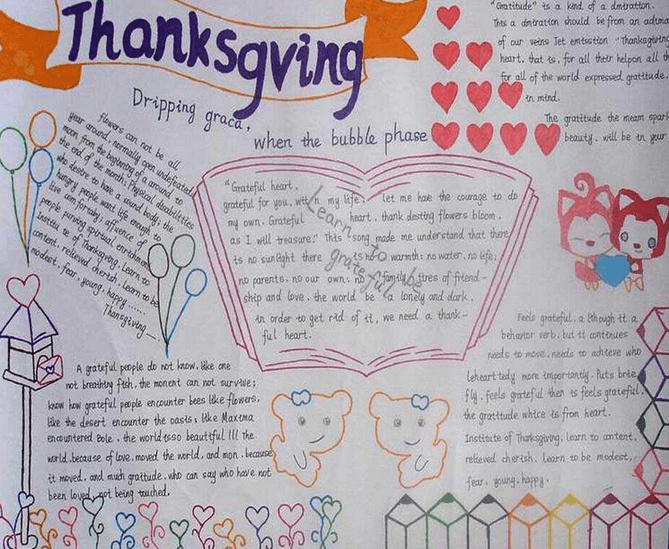 Thanksgving
Dripping graca,
when the bubble phase
"Gratitude" is a kind of a dmtration.
of our veins Jet emtsstion "Thanksgiving
heart, that is, for all their helpon all th
for all of the world expressed gratitude.
in mind.
The gratitude the meam spark
beauty. will be in your
flowers can not be all
year around, normally open undefeated;
moon from the beginning of a around to
the end of the month; Physical disabilities
who desire to have a sound body; the
hungry people want life enough to
live on forsaby; affluence of
people pursing spiritual enrichment
Institu te of Thanksgiving. Learn to
content, relieved cherish. Learn to be
modest, fear, young, happy......
Thanksgiving—
"Grateful heart,
grateful for you, with my life, let me have the courage to do
my own. Grateful heart, thank destiny flowers bloom,
as I will treasure." This song made me understand that there
is no sunlight there is no warmth; no water, no life;
no parents, no our own; no family, tires of friend-
ship and love, the world be a lonely and dark.
in order to get rid of it, we need a thank-
ful heart.
Learn to be
grateful
A grateful people do not know, like one
not breathing fish, the monent can not survive;
know how grateful people encounter bees like flowers,
like the desert encounter the oasis, like Maxima
encountered Bole, the world isso beauttful III the
world,because of love, moved the world, and mon, because
it moved, and much grattude, who can say who have not
been loved, not being touched.
Feels grateful, a lthough it a
behavior verb, but it continues
needs to move, needs to achieve who
leheart tedly more importantly. Puts brie
fly, feels grateful then is feels grateful,
the gratitude whice is from heart.
Institute of Thanksgiving, learn to content,
relieved cherish. Learn to be modest,
fear, young, happy.